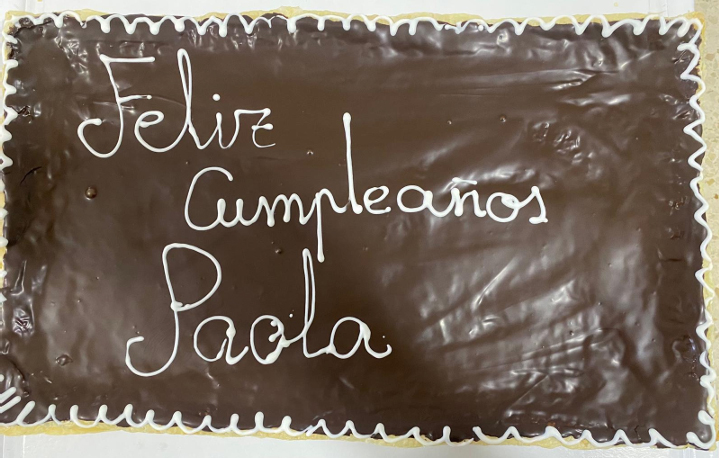 Feliz
Cumpleaños
Paola